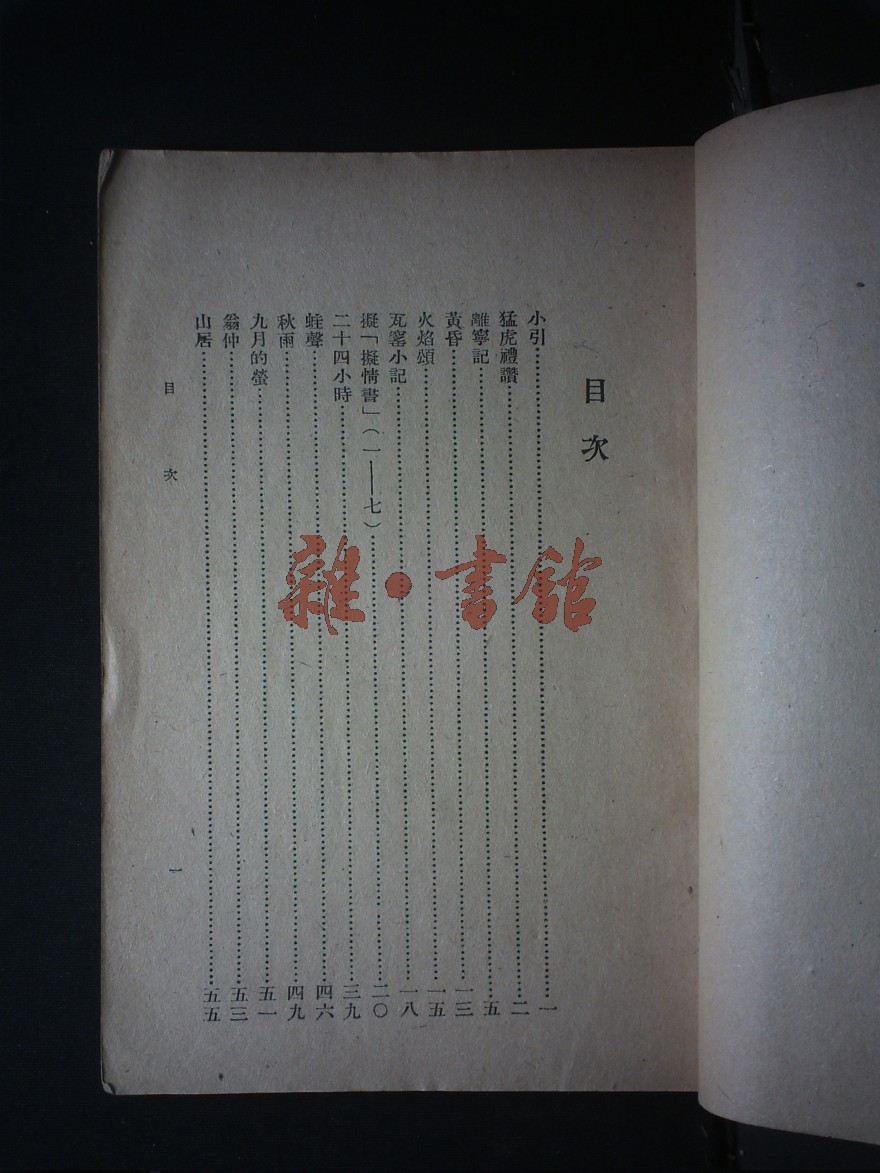 目次
小引…………一
猛虎禮讚…………二
離寧記…………五
黃昏…………一三
火焰頌…………一五
瓦窰小記…………一八
擬「擬情書」(一——七)…………二〇
二十四小時…………三九
蛙聲…………四六
秋雨…………四九
九月的螢…………五一
翁仲…………五三
山居…………五五
目次
一
雜·書館